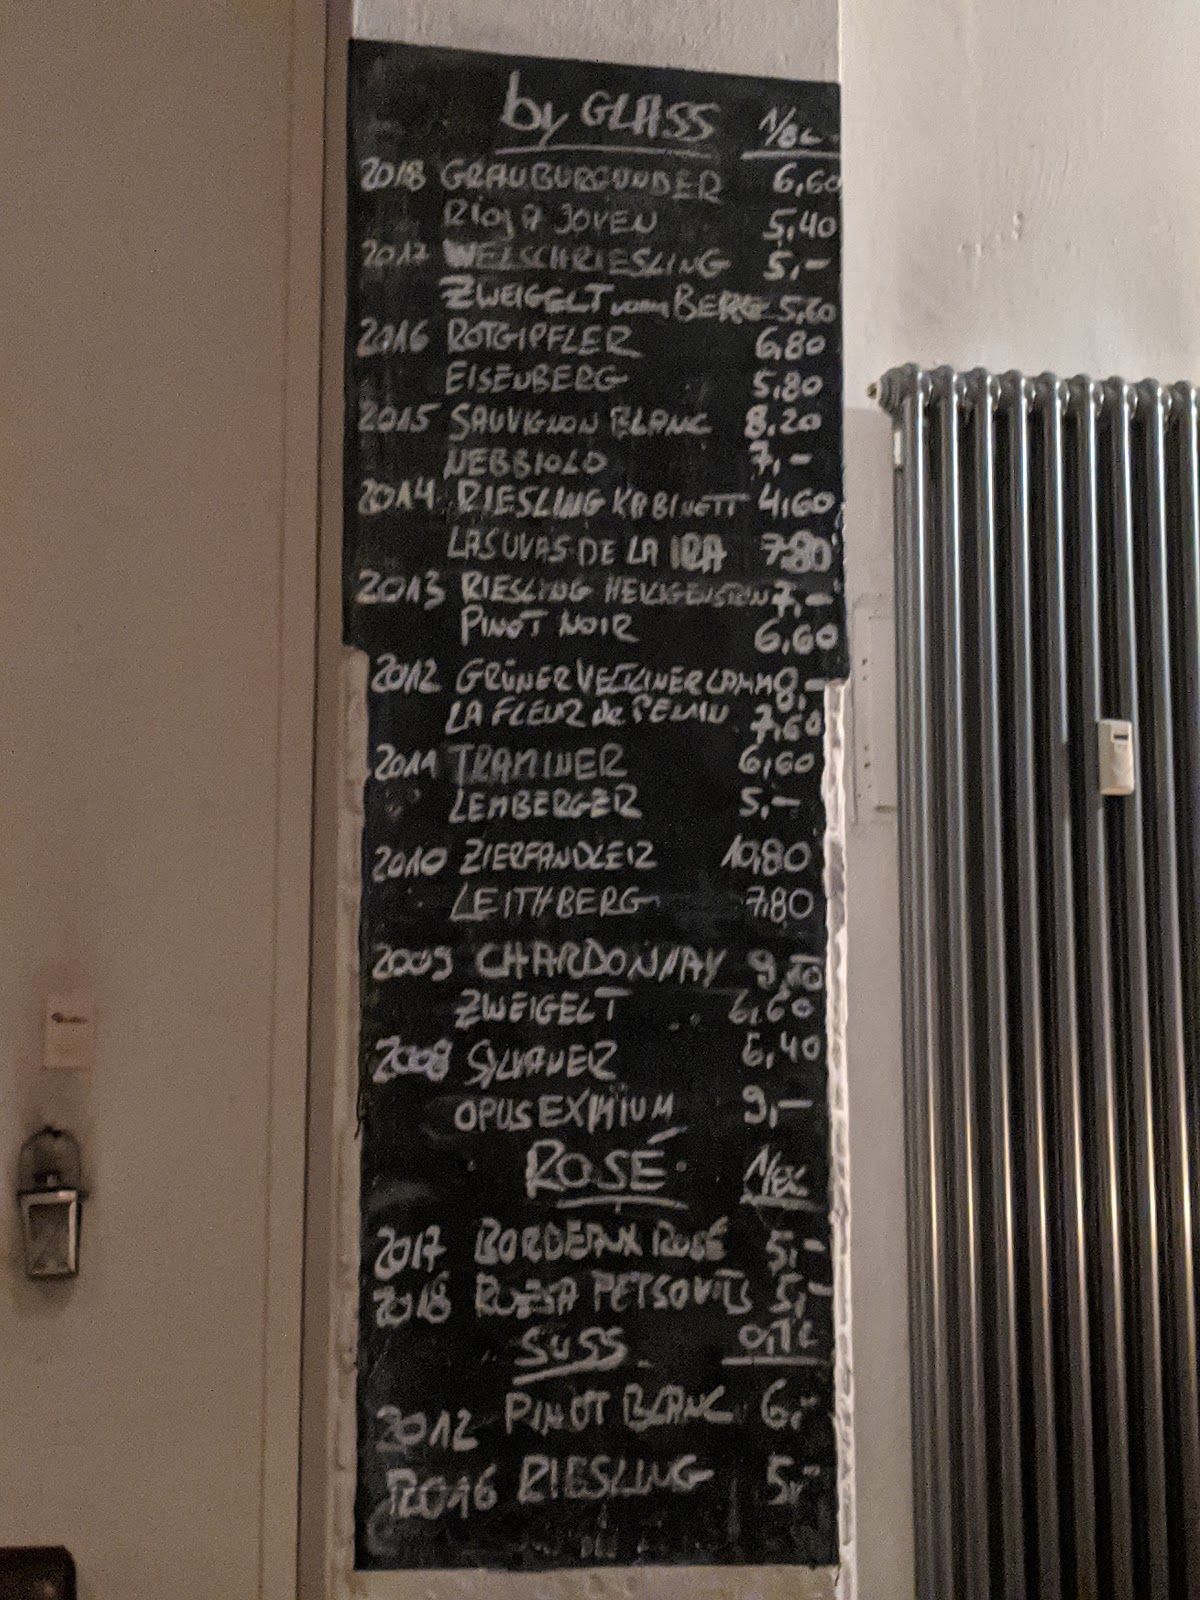 by GLASS 1/8L
2018 GRAUBURGUNDER 6,60
RIOJA JOVEN 5,40
2017 WELSCHRIESLING 5,-
ZWEIGELT vom BERG 5,60
2016 ROTGIPFLER 6,80
EISENBERG 5,80
2015 SAUVIGNON BLANC 8,20
NEBBIOLO 7,-
2014 RIESLING KABINETT 4,60
LAS UVAS DE LA IRA 7,80
2013 RIESLING HEILIGENSTEIN 7,-
PINOT NOIR 6,60
2012 GRÜNER VELTLINER LAMM 8,-
LA FLEUR de 7,60
2011 TRAMINER 6,60
LEMBERGER 5,-
2010 ZIERFANDLER 10,80
LEITHBERG 7,80
2009 CHARDONNAY 9,10
ZWEIGELT 6,60
2008 SYLVANER 6,40
OPUS EXIMIUM 9,-
ROSÉ 1/8L
2017 BORDEAUX ROSÉ 5,-
2018 PETSOVITS 5,-
SÜSS 0,1L
2012 PINOT BLANC 6,-
2016 RIESLING 5,-